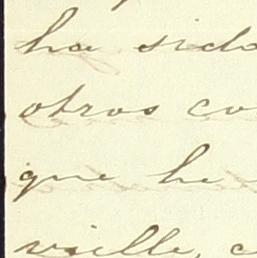 ha sido
otros co
que he
vielle, c